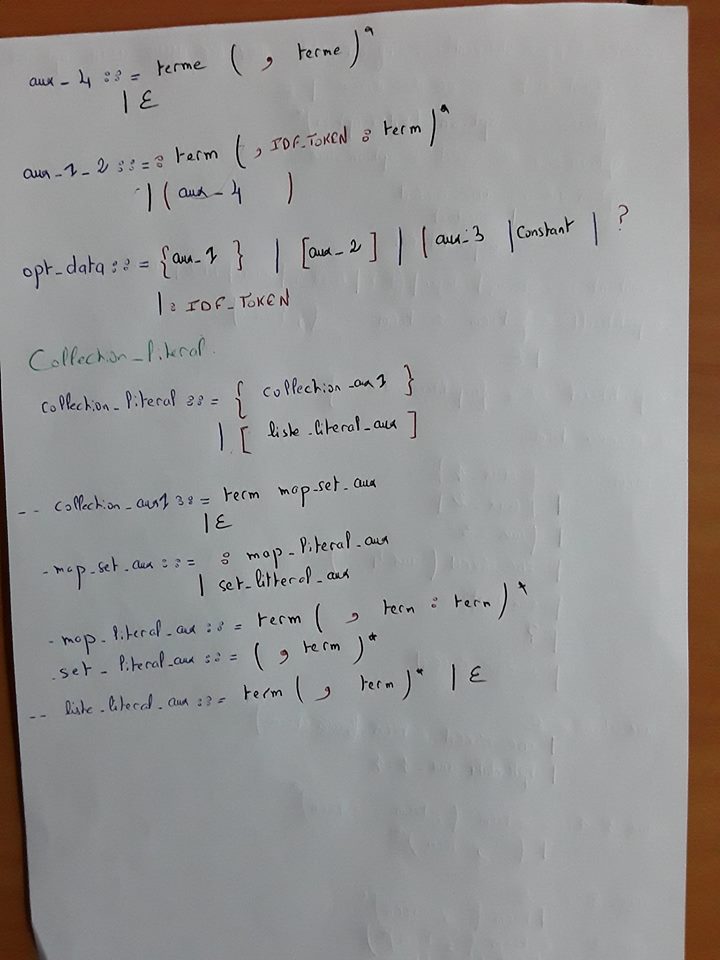 aux_4 ::= terme ( , terme )*
| ε
aux_1_2 ::= : term ( , IDF_TOKEN : term )*
| ( aux_4 )
opt_data ::= { aux_1 } | [ aux_2 ] | ( aux_3 | Constant | ?
| : IDF_TOKEN
Collection_literal.
collection_literal ::= { collection_aux1 }
| [ liste_literal_aux ]
-- collection_aux1 ::= term map_set_aux
| ε
- map_set_aux ::= : map_literal_aux
| set_litteral_aux
- map_literal_aux ::= term ( , term : term )*
. set_literal_aux ::= ( , term )*
-- liste_literal_aux ::= term ( , term )* | ε